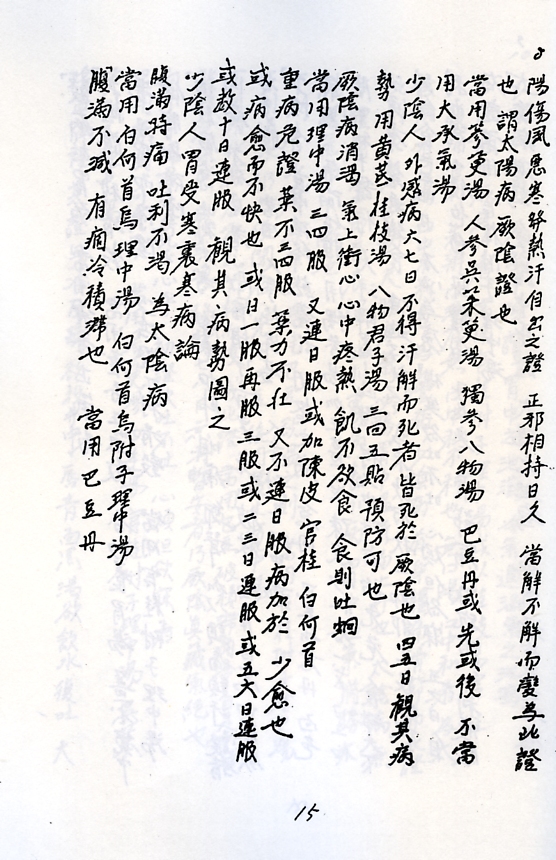 8
陽傷風惡寒發熱汗自出之證 正邪相持日久 當解不解而變為此證
也 謂太陽病厥陰證也
當用蔘萸湯 人參吳茱萸湯 獨參八物湯 巴豆丹或先或後 不當
用大承氣湯
少陰人 外感病六七日不得汗解而死者皆死於厥陰也 四五日觀其病
勢 用黃芪桂枝湯 八物君子湯三四五貼 預防可也
厥陰病消渴 氣上衝心 心中疼熱 飢不欲食 食則吐蛔
當用理中湯 三四服 又連日服 或加陳皮 官桂 白何首
重病危證 藥不三四服 藥力不壮 又不連日服病加於 少愈也
或病愈而不快也 或日一服再服 三服或 二三日連服 或五六日連服
或数十日連服 觀其病勢圖之
少陰人 胃受寒裏寒病論
腹滿時痛 吐利不渴 為太陰病
當用白何首烏理中湯 白何首烏附子理中湯
腹滿不减 有痼冷積滯也 當用巴豆丹
15